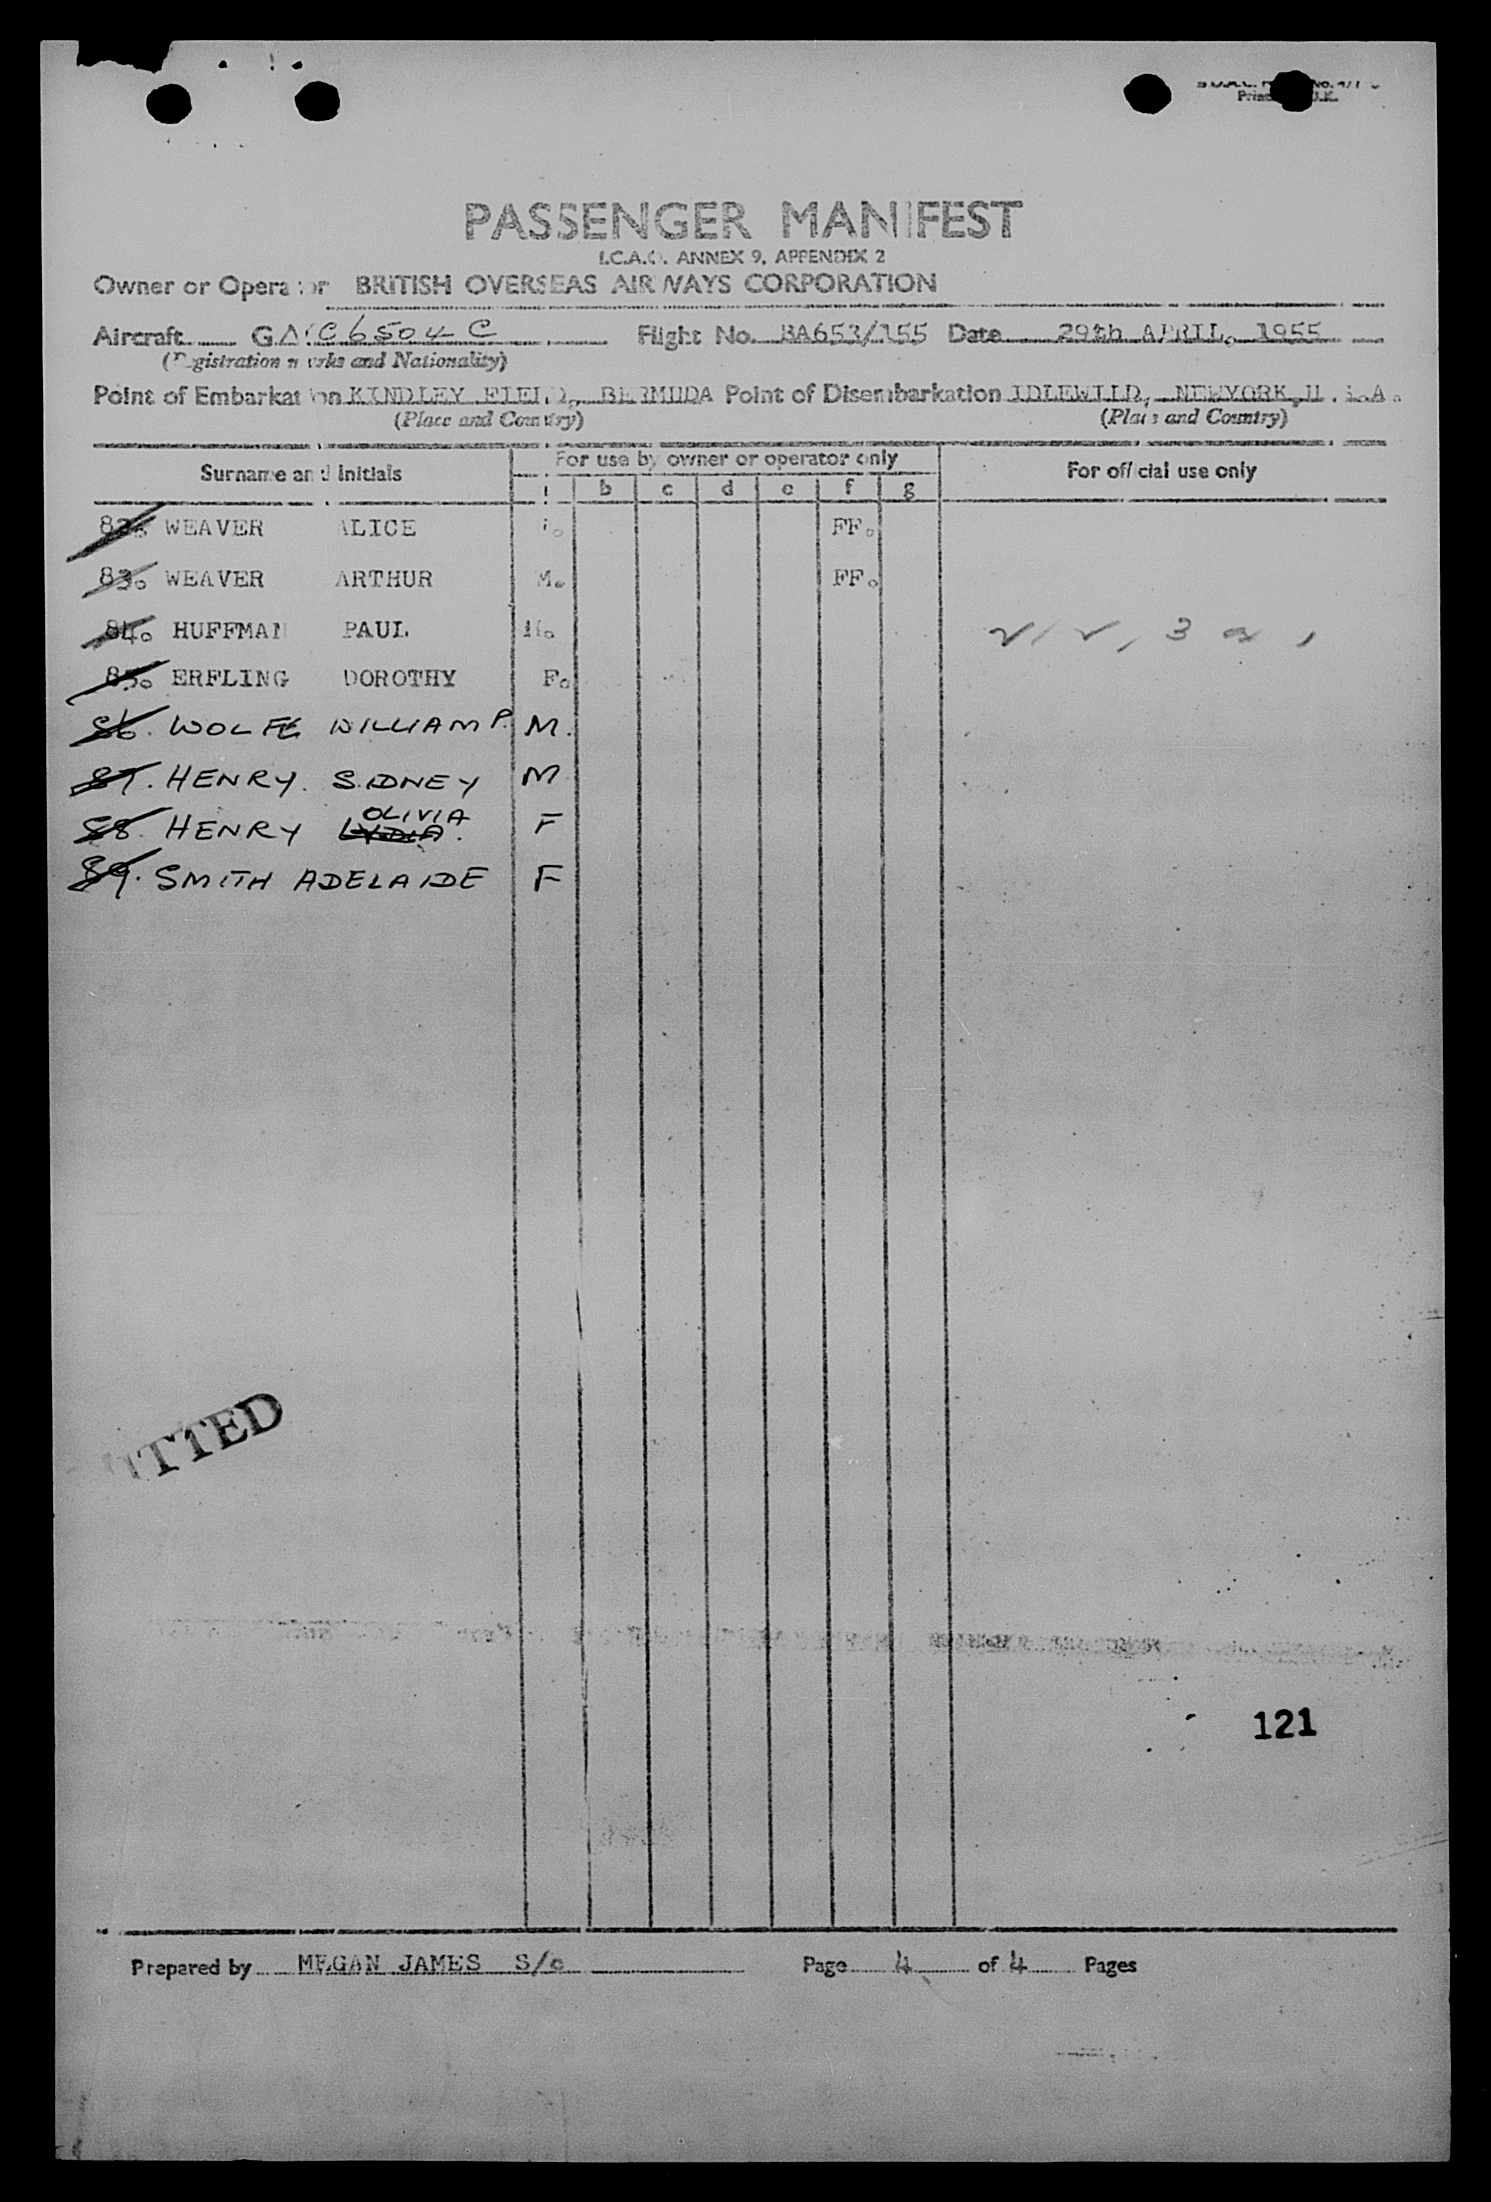 PASSENGER MANIFEST
I.C.A.O. ANNEX 9, APPENDIX 2
Owner or Operator BRITISH OVERSEAS AIRWAYS CORPORATION
Aircraft Flight No. BA653/155 Date 29th APRIL. 1955
(Registration marks and Nationality)
Point of Embarkation KINDLEY FIELD, BERMUDA Point of Disembarkation IDLEWILD, NEWYORK, U.S.A.
(Place and Country) (Place and Country)
Surname and Initials For use by owner or operator only For official use only
b c d e f g
WEAVER ALICE FF.
83. WEAVER ARTHUR M. FF.
84. HUFFMAN PAUL M.
85. ERFLING DOROTHY F.
86. WOLFE WILLIAM P. M.
87. HENRY. SIDNEY M
OLIVIA
88. HENRY LYDIA. F
89. SMITH ADELAIDE F
ITTED
121
Prepared by MEGAN JAMES S/o Page 4 of 4 Pages